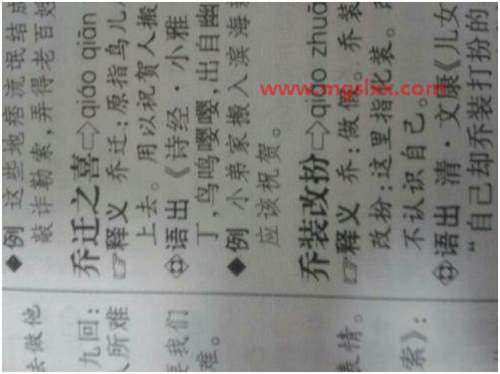 ◆例 这些地痞流氓结成
敲诈勒索,弄得老百姓
乔迁之喜⇨qiáo qiān
☞释义 乔迁:原指鸟儿
上去。用以祝贺人搬
语出《诗经·小雅
丁,鸟鸣嘤嘤,出自幽
◆例 小弟家搬入滨海
应该祝贺。
乔装改扮⇨qiáo zhuā
☞释义 乔:做假。乔装
改扮:这里指化装。
不认识自己。
语出 清·文康《儿女
“自己却乔装打扮的
去做他
九回:
人所难
我们
难。
表情。
索》:
www.mgslxx.com